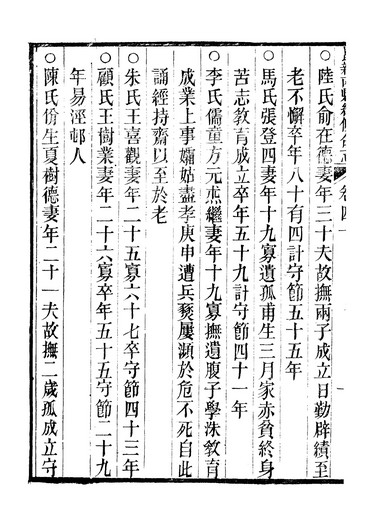 ○陸氏俞在德妻年三十夫故撫兩子成立日勤辟績至
老不懈卒年八十有四計守節五十五年
○馬氏張登四妻年十九寡遺孤甫生三月家赤貧終身
苦志教育成立卒年五十九計守節四十一年
○李氏儒童方元烝繼妻年十九寡撫遺腹子學洙教育
成業上事孀姑盡孝庚申遭兵燹屢瀕於危不死自此
誦經持齋以至於老
○朱氏王喜觀妻年二十五寡六十七卒守節四十三年
○顧氏王樹業妻年二十六寡卒年五十五守節二十九
年易涇邨人
○陳氏佾生夏樹德妻年二十一夫故撫二歲孤成立守